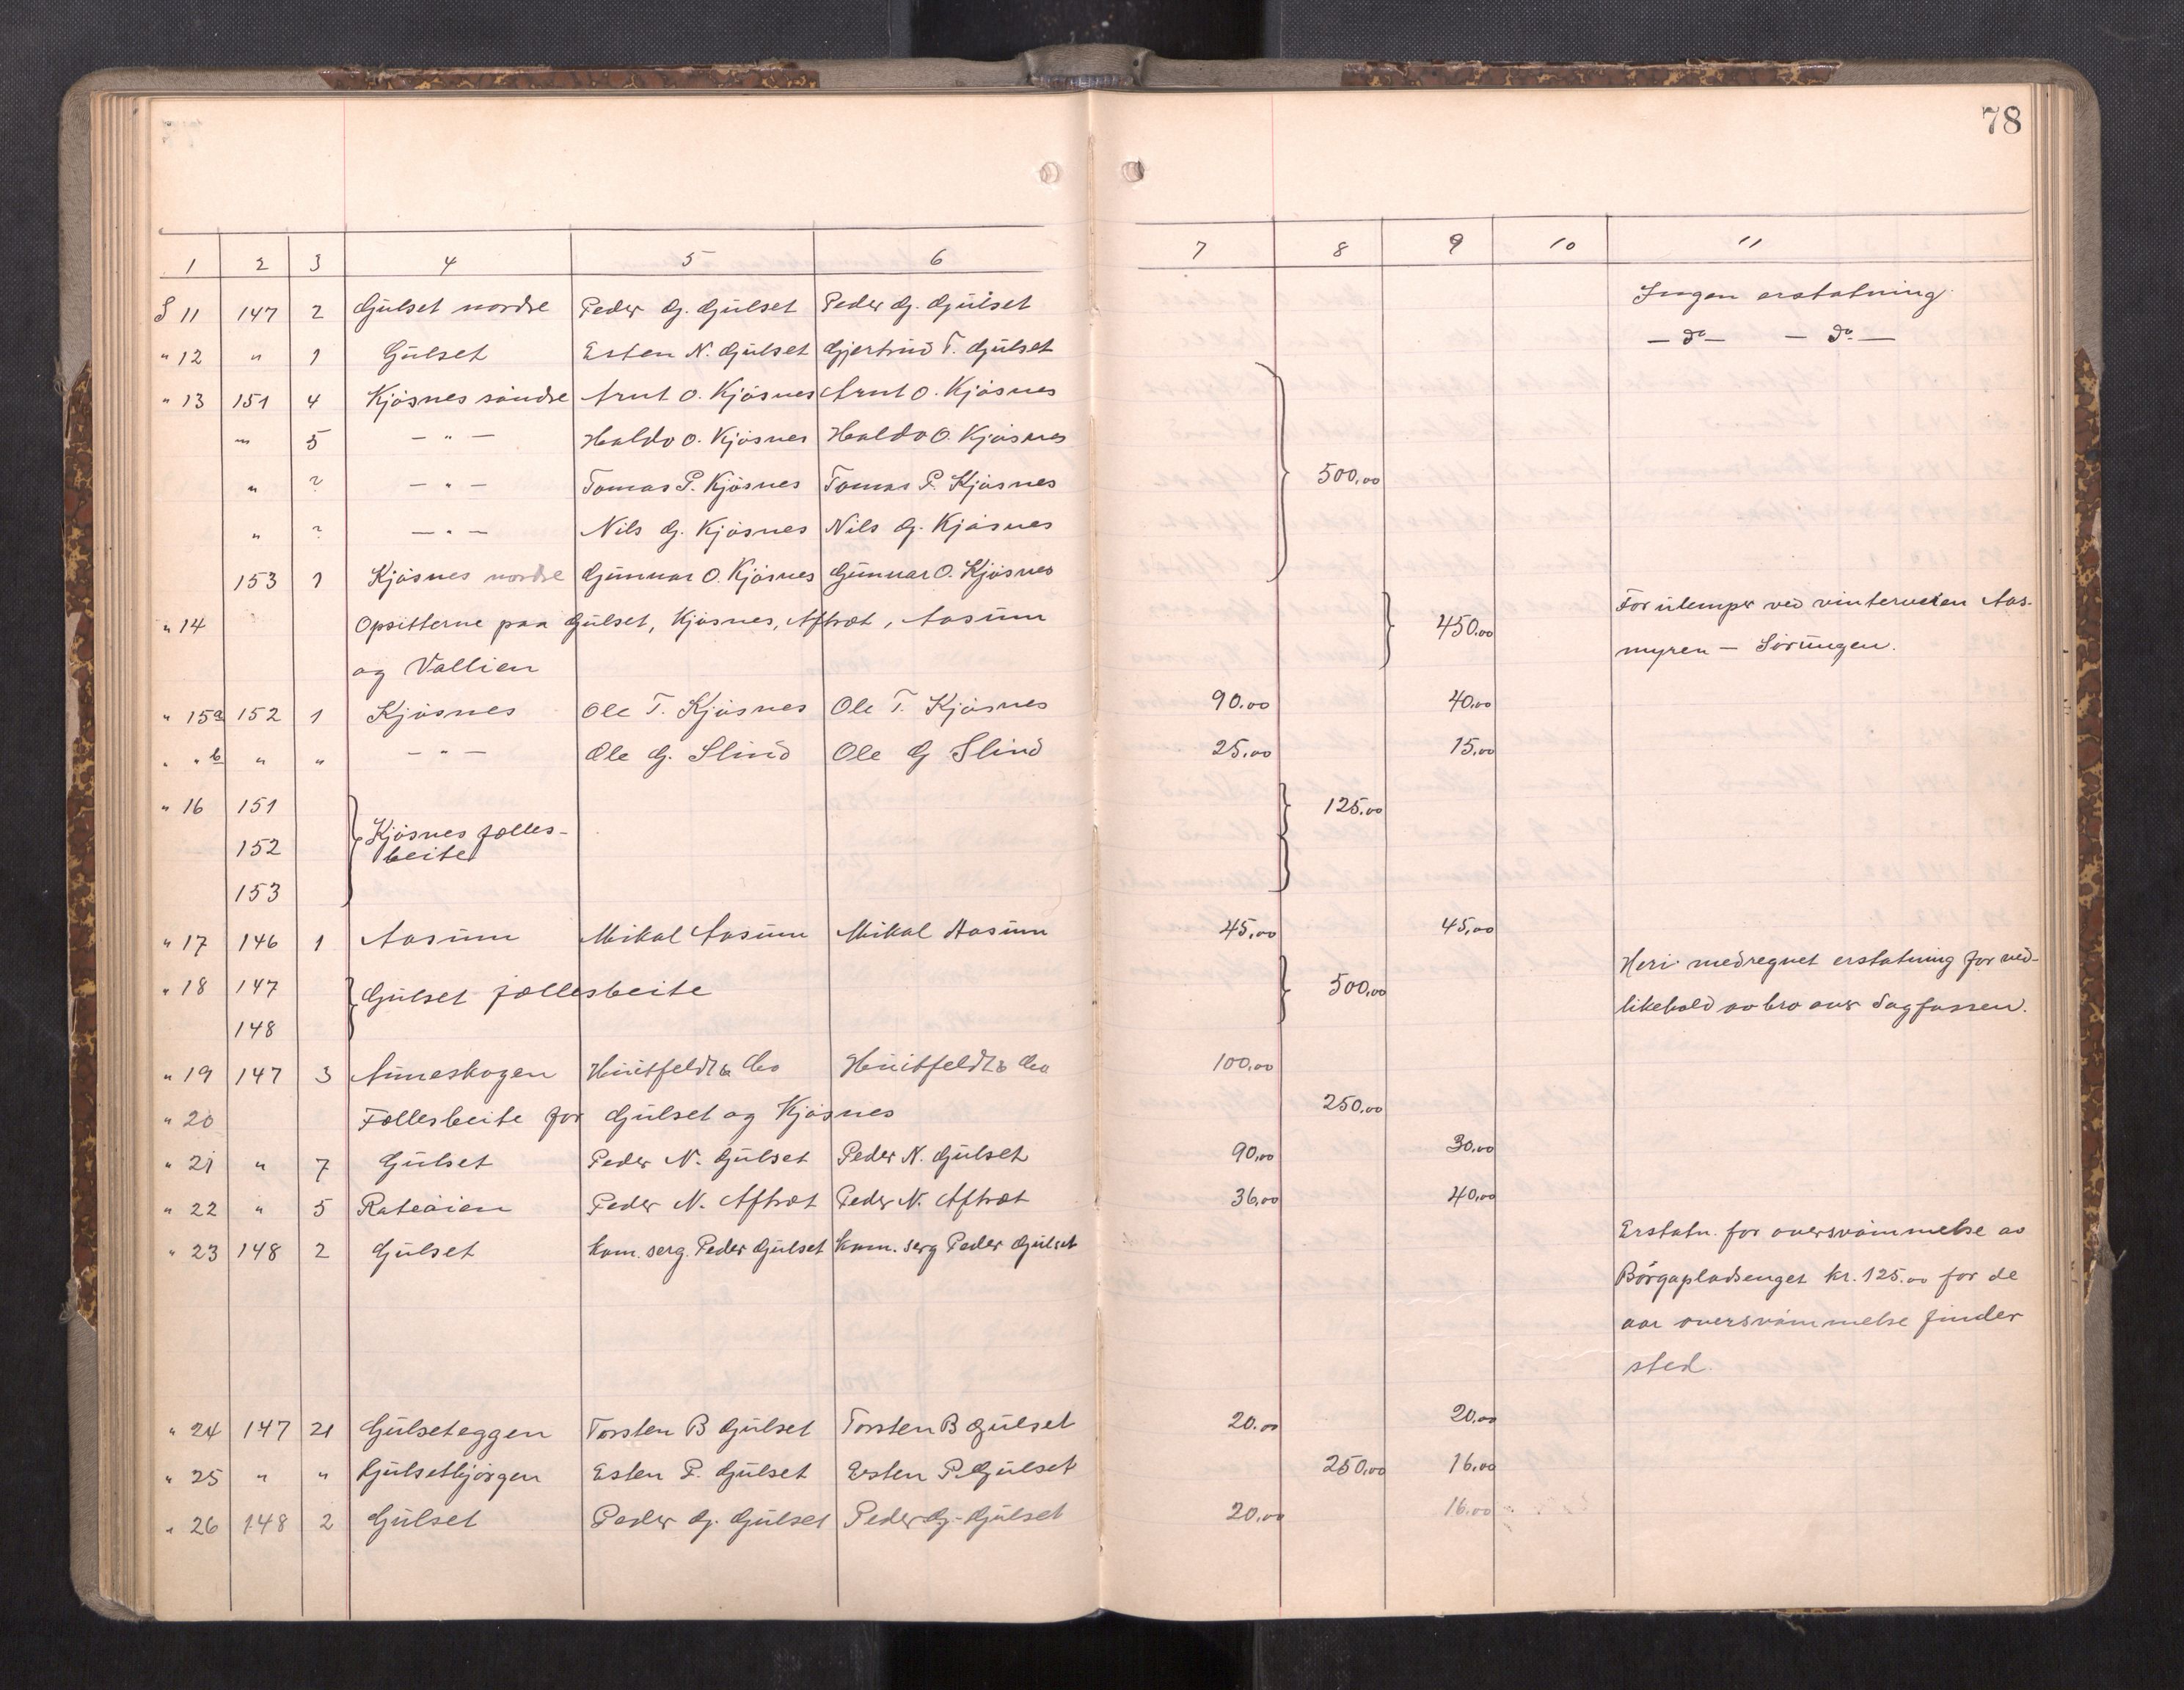 78
1 2 3 4 5 6 7 8 9 10 11
S 11 147 2 Gülset nordre Peder G. Gülset Peder G. Gülset Ingen erstatning
" 12 " 1 Gülset Esten N. Gülset Gjertrud T. Gülset — do — — do —
" 13 151 4 Kjøsnes søndre Arnt O. Kjøsnes Arnt O. Kjøsnes
" 5 — " — Haldo O. Kjøsnes Haldo O. Kjøsnes
" ? — " — Tomas P. Kjøsnes Tomas P. Kjøsnes 500,00
" ? — " — Nils G. Kjøsnes Nils G. Kjøsnes
153 1 Kjøsnes nordre Gunnar O. Kjøsnes Gunnar O. Kjøsnes
" 14 Opsitterne paa Gülset, Kjøsnes, Aftræt, Aasüm 450.00 For ülemper ved vinterveien Aas-
og Vollien myren — Sørüngen.
" 15a 152 1 Kjøsnes Ole T. Kjøsnes Ole T. Kjøsnes 90.00 40,00
" " b " " — " — Ole G. Slind Ole G Slind 25,00 15,00
" 16 151 125.00
152 Kjøsnes fælles-
beite
153
" 17 146 1 Aasüm Mikal Aasüm Mikal Aasüm 45,00 45,00
" 18 147 Gülset fællesbeite 500,00 Heri medregnet erstatning for ved-
148 likehold av bro over Sagfossen.
" 19 147 3 Anneskogen Hüitfeldt & Co Hüitfeldt & Co 100,00
" 20 Fællesbeite for Gülset og Kjøsnes 250.00
" 21 " 7 Gülset Peder N. Gülset Peder N. Gülset 90,00 30,00
" 22 " 5 Rateaien Peder N. Aftræt Peder N. Aftræt 36,00 40,00
" 23 148 2 Gülset kom. serg. Peder Gülset kom. serg Peder Gülset Erstatn. for oversvømmelse av
Børgapladsenget kr. 125.00 for de
aar oversvømmelse finder
sted.
" 24 147 21 Gülseteggen Torsten B Gülset Torsten B Gülset 20.00 20,00
" 25 " " Gülsetbjørgen Esten P. Gülset Esten P. Gülset 250,00 16,00
" 26 148 2 Gülset Peder G. Gülset Peder G. Gülset 20,00 16.00